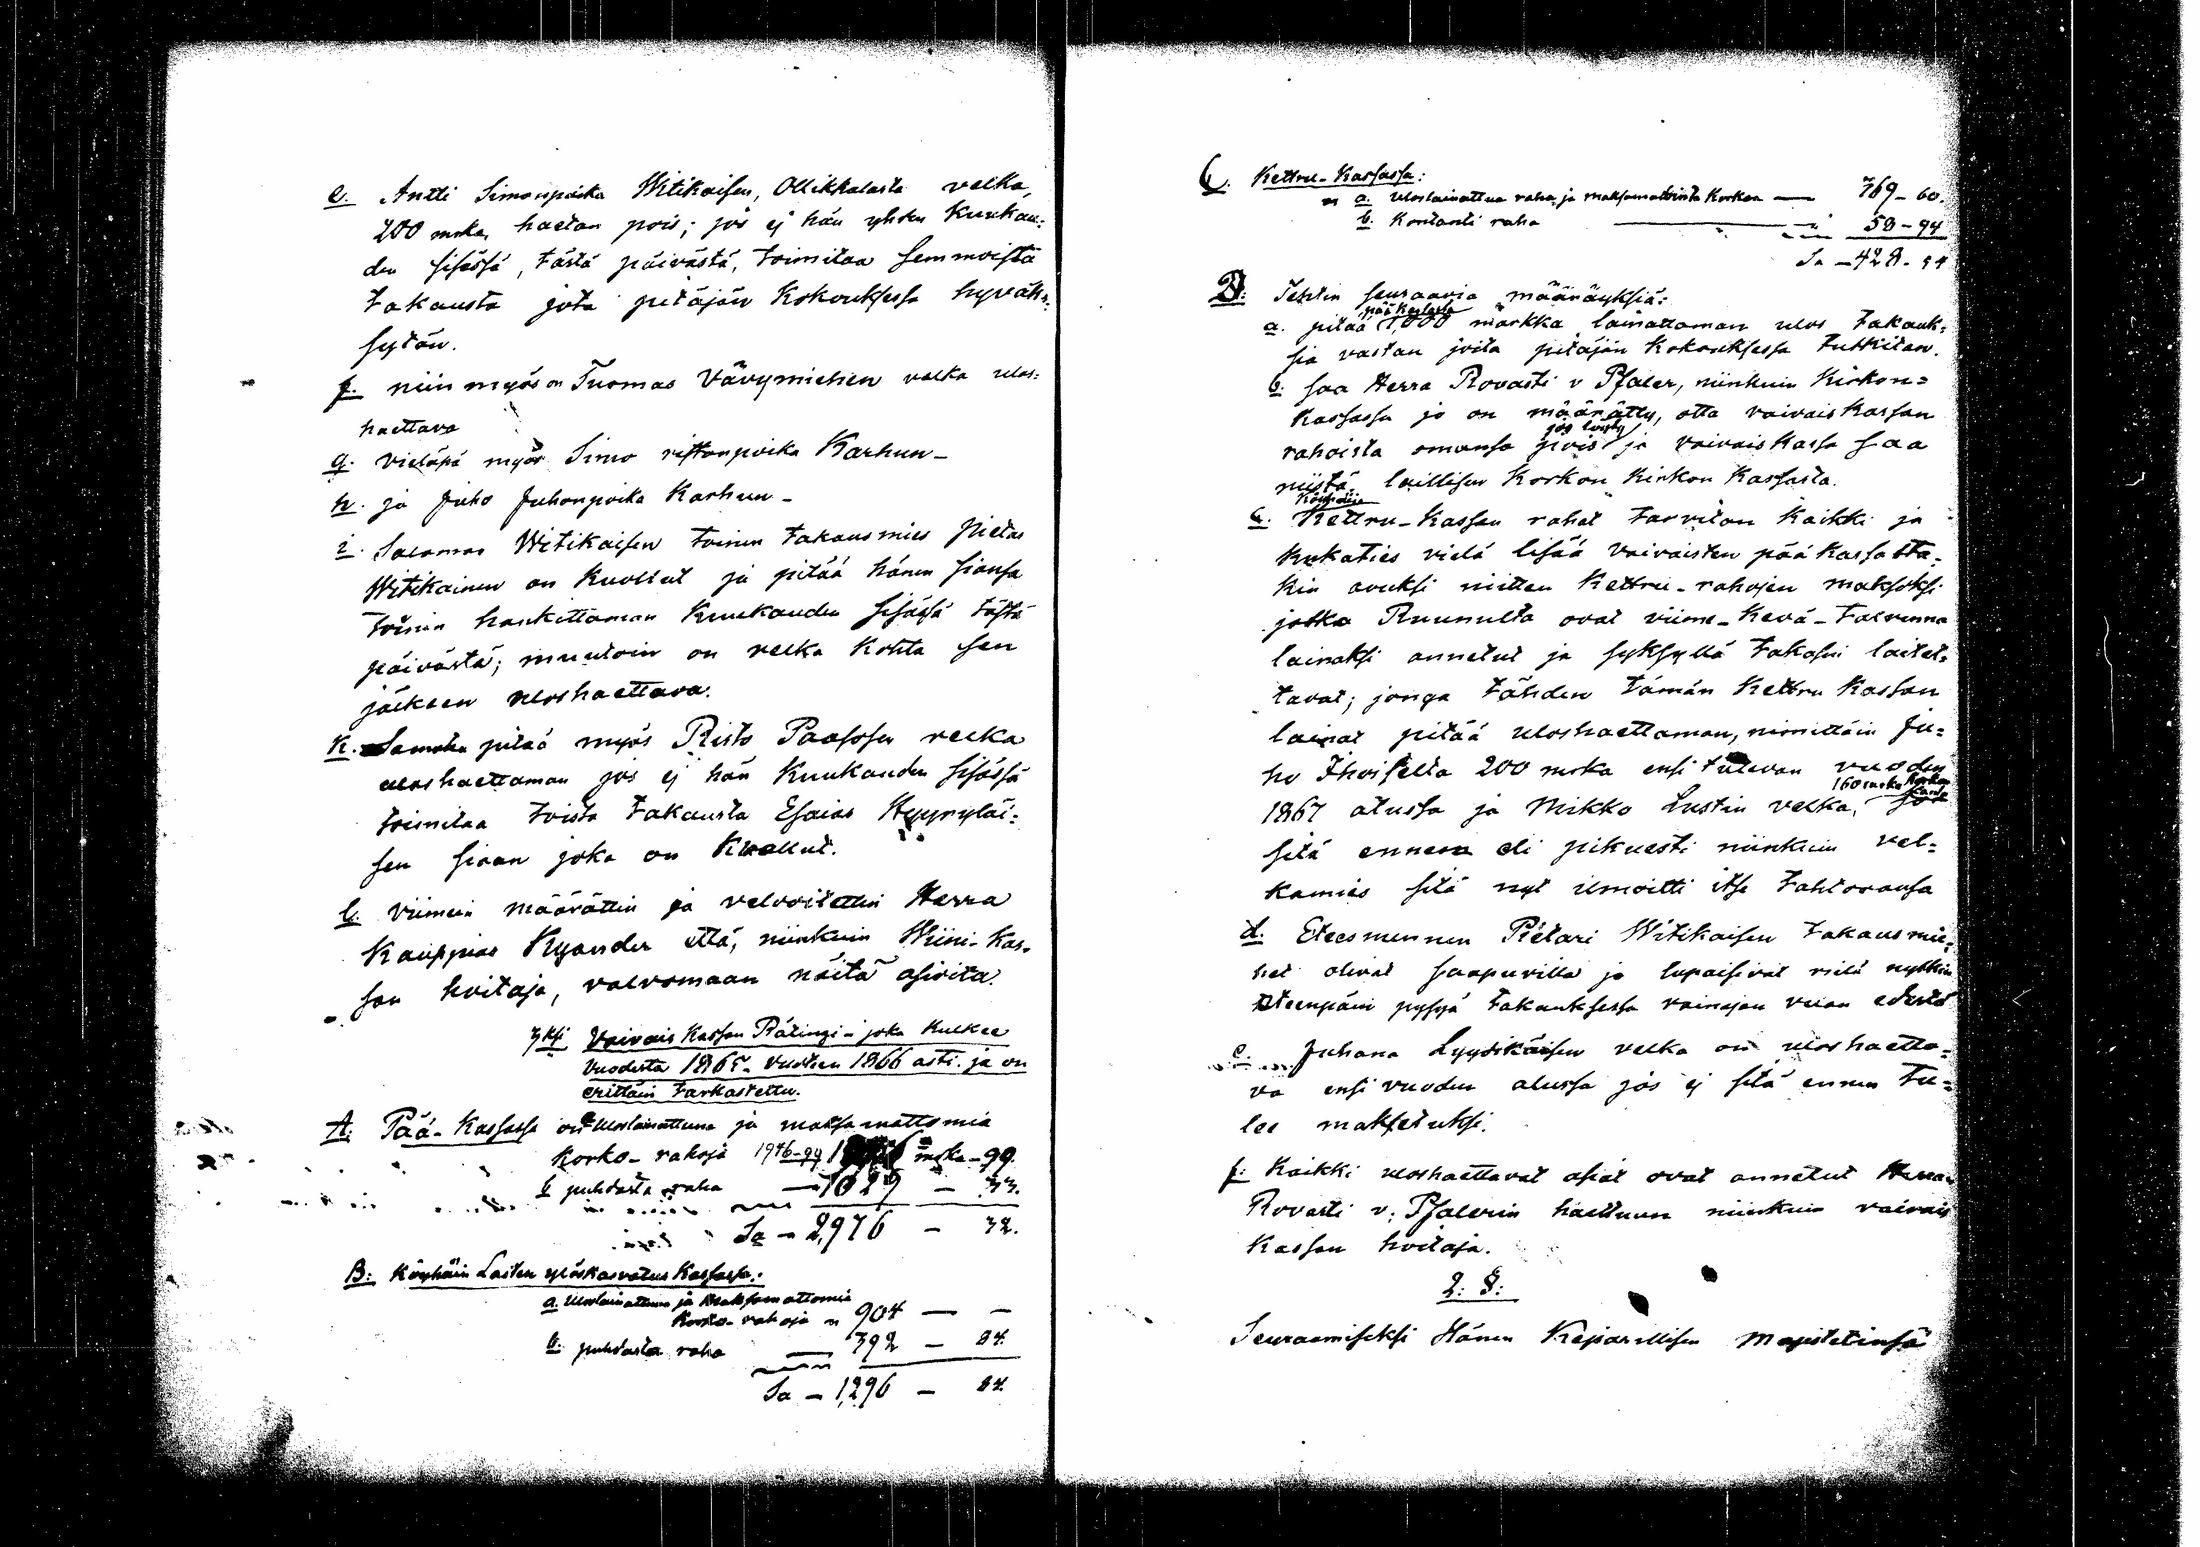 e. Antti Simonpoika Witikaisen, Ollikkalasta velka,
200 mrka, haetan pois; jos ej hän yhden Kuukau:
den sisässä, tästä päivästä, toimitaa semmoista
takausta jota pitäjän Kokouksessa hyväk:
sytän.
f. niin myös on Tuomas Vävymiehen velka ulos:
haettava
g. vieläpä myös Simo ristonpoika Karhun-
h. ja Juho Juhonpoika Karhun-
i. Salomon Witikaisen toinen takausmies Pietar
Witikainen on Kuollut ja pitää hänen siansa
toinen hankittaman Kuukauden sisässä tästä
päivästä; muutoin on velka Kohta sen
jälkeen uloshaettava.
k. Samoten pitää myös Risto Paasosen velka
uloshaettaman jos ej hän Kuukauden sisässä
toimitaa toista takausta Esaias Hyypyläi:
sen siaan joka on Kuollut.
l. viimein määrättin ja velvoitettin Herra
Kauppias Kyander että, niinkuin Wiini-Kas-
san hoitaja, valvomaan näitä asioita.
7 ksi Vaivais Kassan Rätingi - joka Kulkee
vuodesta 1865 - vuoteen 1866 asti. ja on
erittäin tarkastettu.
A: Pää-Kassassa on uloslainattuna ja maksamattomia
Korko-rahoja 1946-99 mrka - 99.
b puhdasta raha — 1029 — 33.
Sa — 2,976 — 32.
B: Köyhäin Lasten ylöskasvatus Kassassa:
a. Uloslainattuna ja maksamattomia
Korko-rahoja " 904 — —
b. puhdasta raha — 392 — 84.
Sa — 1,296 — 84.
C. Kettru-Kassassa:
a. uloslainattua raha ja maksamattointa Korkoa — 369-60.
b. Kontanti raha — 59-94
Sa — 428-54
D: Tehtin seuraavia määräyksiä:
pääkassasta
a. pitää 1,000 markka lainattaman ulos takauk:
sia vastan joita pitäjän Kokouksessa tutkitan.
b. saa Herra Rovasti v Pfaler, niinkuin Kirkon=
Kassassa jo on määrätty, otta vaivaisKassan
jos löyty
rahoista omansa pois ja vaivaisKassa saa
niistä laillisen Korkon Kirkon Kassasta.
c. Kettru-Kassan rahat tarvitan Kaikki ja
Kukaties vielä lisää vaivaisten pääkassasta-
kin avuksi niitten Kettru-rahojen maksoksi
jotka Ruunulta ovat viime-Kevä-talvenna
lainaksi annetut ja syksyllä takasin laitet:
tavat; jonga tähden tämän Kettru Kassan
lainat pitää uloshaettaman, nimittäin Ju=
ho Ihoiselta 200 mrka ensi tulevan vuoden
160 mrka Korkon
kansa
1867 alussa ja Mikko Lustin velka,
sitä ennen eli pikuesti niinkuin vel=
kamies sitä nyt ilmoitti itse tahtovansa
d. Edesmennen Pietari Witikaisen takausmie:
het olivat saapuvilla ja lupaisivat vielä nytkin
eteenpäin pysyä takauksessa vainajan velan edestä
e. Juhana Lyydikäisen velka on uloshaetta=
va ensi vuoden alussa jos ej sitä ennen tu=
lee maksetuksi.
f. Kaikki uloshaettavat asiat ovat annetut Herra
Rovasti v. Pfalerin haettuun niinkuin vaivais
Kassan hoitaja.
2: §:
Seuraamiseksi Hänen Kejsarillisen Majstetinsä